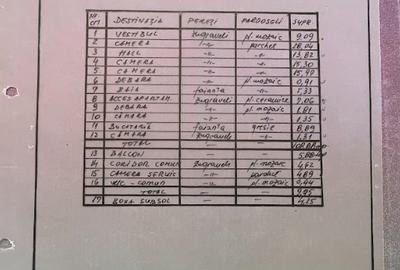 NR. CRT DESTINAȚIA PEREȚI PARDOSOLI SUPR
1 VESTIBUL zugraveli pl. mozaic 9,09
2 CAMERA -"- parchet
3 HALL -"- -"- 13,82
4 CAMERA -"- -"- 15,30
5 CAMERA -"- -"-
6 DEBARA -"- pl. mozaic 0,91
7 BAIA faianta -"- 5,33
8 ACCES APARTAM. zugraveli pl. ceramice 7,06
9 DEBARA -"- pl. mozaic
10 CĂMARA -"- -"- 1,35
11 BUCATARIE faianta gresie 8,89
12 CĂMARA zugraveli -"- 1,31
TOTAL — —
13 BALCON — —
14 CORIDOR COMUN zugraveli pl. mozaic 4,62
15 CAMERA SERVIC -"- parchet 4,89
16 WC - comun -"- pl. mozaic 0,44
TOTAL — — 9,95
17 BOXA SUBSOL — — 4,25